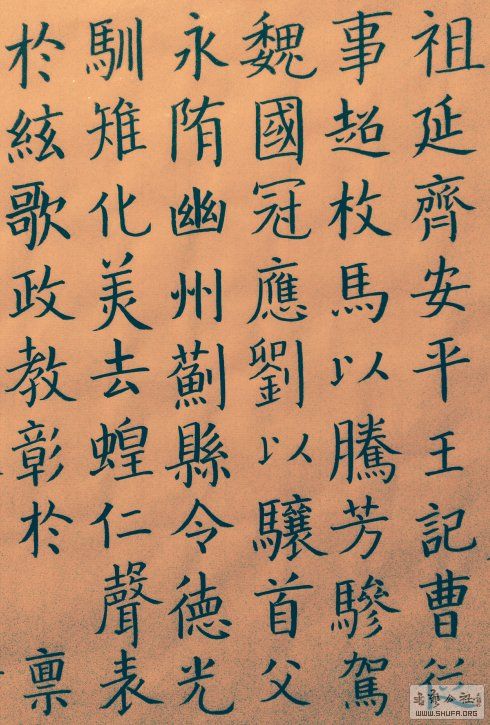 祖延齊安平王記曹從
事超枚馬以騰芳驂駕
魏國冠應劉以驤首父
永陏幽州薊縣令徳光
馴雉化美去蝗仁聲表
於絃歌政教彰於 稟
WWW.SHUFA.ORG